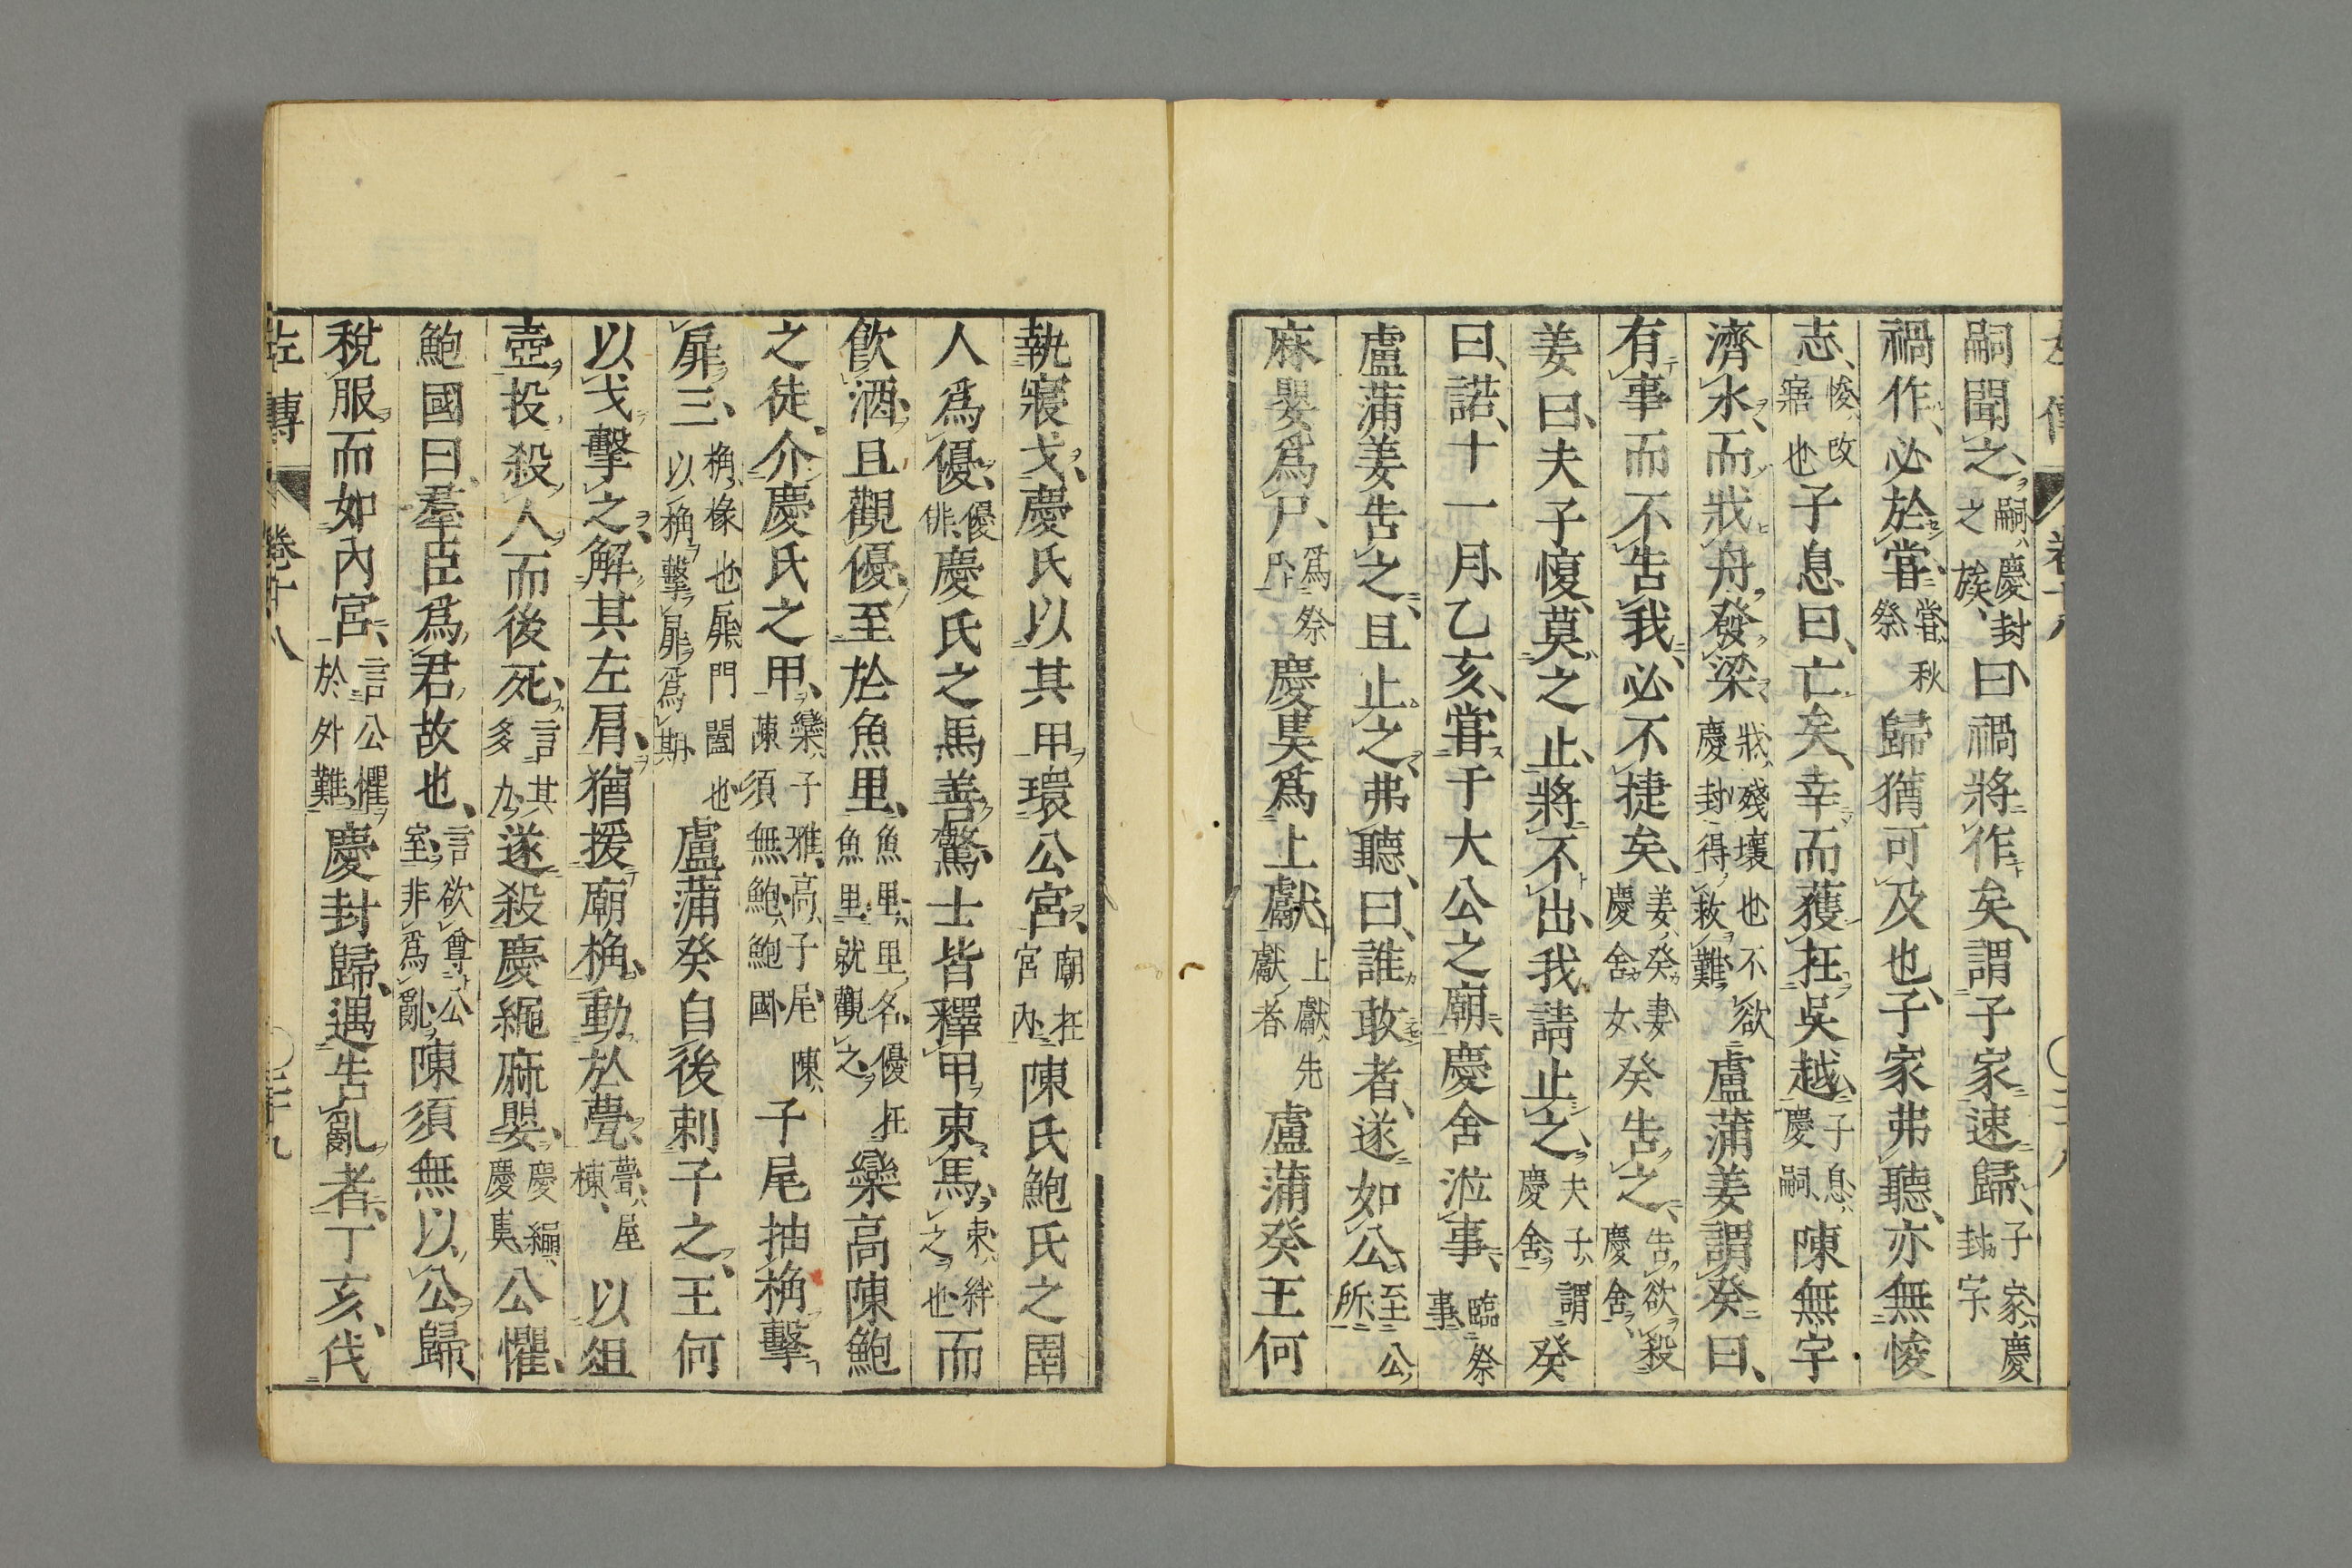 左傳 卷十八 〇二十八
嗣聞之、嗣、慶封之族、曰、禍將作矣、謂子家速歸、子家、慶封字、
禍作、必於嘗、嘗、秋祭歸猶可及也、子家弗聽、亦無悛
志、悛、改寤也子息曰、亡矣、幸而獲在吳越、子息、慶嗣、陳無宇
濟水、而戕舟發梁、戕、殘壞也不欲慶封得救難、盧蒲姜謂癸曰、
有事而不告我、必不捷矣、姜、癸妻慶舍女、癸告之、告欲殺慶舍、
姜曰、夫子愎、莫之止、將不出、我請止之、夫子、謂慶舍、癸
曰、諾、十一月乙亥、嘗于大公之廟、慶舍涖事、臨祭事
盧蒲姜告之、且止之、弗聽、曰、誰敢者、遂如公、至公所、
麻嬰爲尸、爲祭尸慶㚟爲上獻、上獻、先獻者、盧蒲癸王何
執寢戈、慶氏以其甲環公宮、廟在宮內、陳氏鮑氏之圉
人爲優、優俳、慶氏之馬善驚、士皆釋甲束馬、束、絆之也而
飮酒、且觀優、至於魚里、魚里、里名、優在魚里、就觀之、欒高陳鮑
之徒、介慶氏之甲、欒、子雅、高、子尾、陳、陳須無、鮑、鮑國、子尾抽桷、擊
扉三、桷、椽也扉、門闔也以桷擊扉爲期、盧蒲癸自後刺子之、王何
以戈擊之、解其左肩、猶援廟桷、動於甍、甍、屋棟、以俎
壺投殺人、而後死、言其多力、遂殺慶繩麻嬰、慶繩、慶㚟、公懼、
鮑國曰、羣臣爲君故也、言欲尊公室、非爲亂、陳須無以公歸、
稅服而如內宮、言公懼於外難、慶封歸、遇告亂者、丁亥、伐
左傳 卷十八 〇二十九